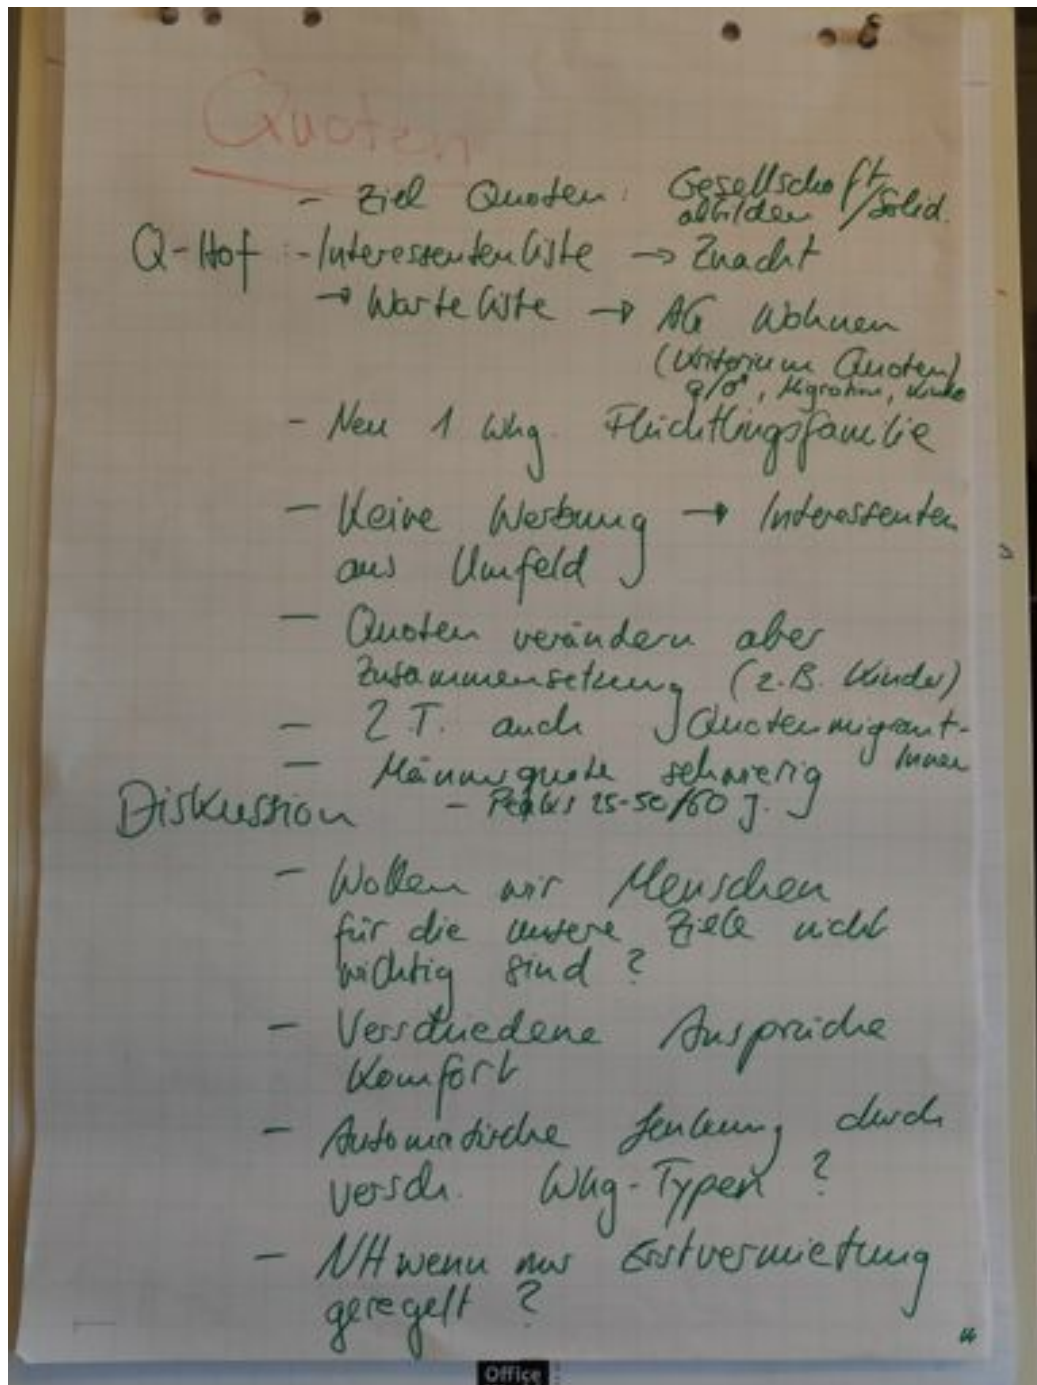 Quoten
- Ziel Quoten: Gesellschaft/Solid.
abbilden
Q-Hof :-Interessentenliste → Znacht
→ Warteliste → AG Wohnen
(Kriterium Quoten)
♀/♂, Migration, Kinder
- Neu 1 Whg. Flüchtlingsfamilie
- Keine Werbung → Interessenten
aus Umfeld
- Quoten verändern aber
Zusammensetzung (z.B. Kinder)
- Z.T. auch Quotenmigrant-
Innen
- Männerquote schwierig
Diskussion - 25-50/60 J.
- Wollen wir Menschen
für die unsere Ziele nicht
wichtig sind ?
- Verschiedene Ansprüche
Komfort
- Automatische Lenkung durch
versch. Whg-Typen ?
- NH wenn nur Erstvermietung
geregelt ?
Office